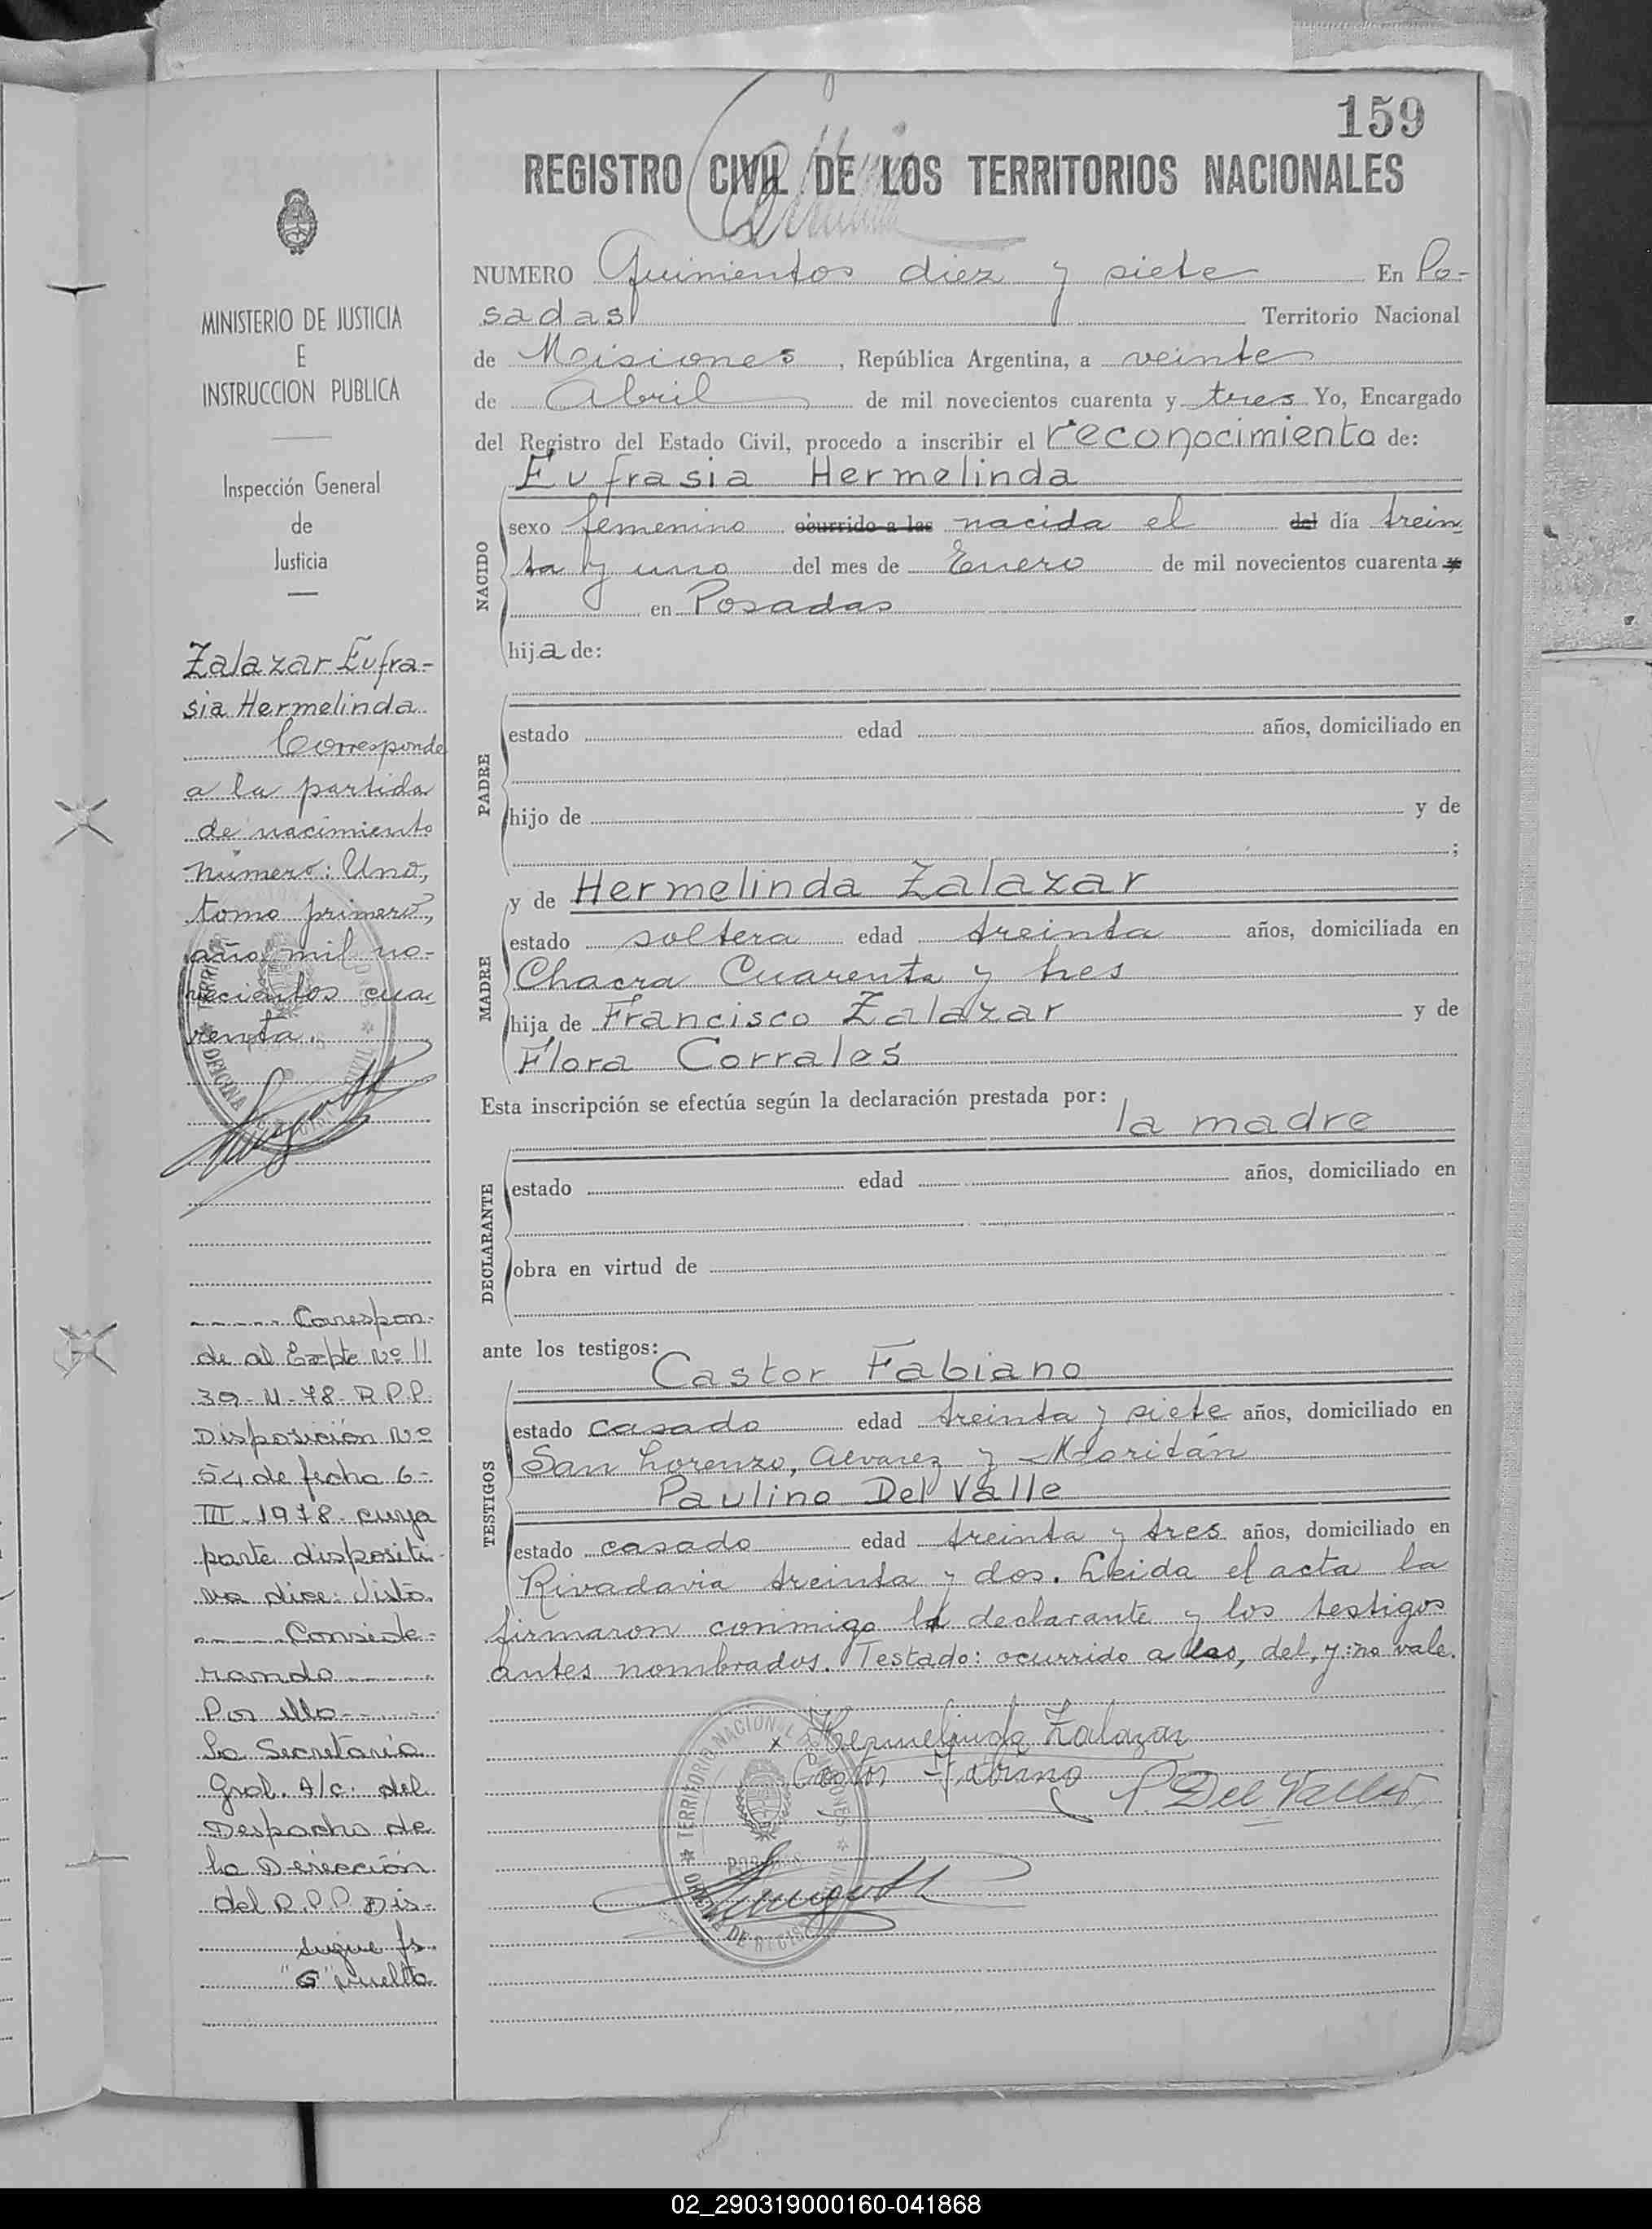 159
REGISTRO CIVIL DE LOS TERRITORIOS NACIONALES
NUMERO Quinientos diez y siete En Po-
sadas Territorio Nacional
de Misiones, República Argentina, a veinte
de Abril de mil novecientos cuarenta y tres Yo, Encargado
del Registro del Estado Civil, procedo a inscribir el reconocimiento de:
Eufrasia Hermelinda
NACIDO
sexo femenino ocurrido a las nacida el del día trein
ta y uno del mes de Enero de mil novecientos cuarenta y
en Posadas
hija de:
PADRE
estado edad años, domiciliado en
hijo de y de
;
MADRE
y de Hermelinda Zalazar
estado soltera edad treinta años, domiciliada en
Chacra Cuarenta y tres
hija de Francisco Zalazar y de
Flora Corrales
Esta inscripción se efectúa según la declaración prestada por:
la madre
DECLARANTE
estado edad años, domiciliado en
obra en virtud de
ante los testigos:
Castor Fabiano
TESTIGOS
estado casado edad treinta y siete años, domiciliado en
San Lorenzo, Alvarez y Moritán
Paulino Del Valle
estado casado edad treinta y tres años, domiciliado en
Rivadavia treinta y dos. Leida el acta la
firmaron conmigo la declarante y los testigos
antes nombrados. Testado: ocurrido a las, del, y: no vale.
Hermelinda Zalazar
Castor Fabiano
P. Del Valle
MINISTERIO DE JUSTICIA
E
INSTRUCCION PUBLICA
Inspección General
de
Justicia
Zalazar Eufra-
sia Hermelinda
Corresponde
a la partida
de nacimiento
número: Uno,
tomo primero,
año mil no-
vecientos cua-
renta.
Correspon-
de al Expte Nº 11
39-M-78-R.P.P.
Disposición Nº
54 de fecha 6-
III-1978 cuya
parte dispositi-
va dice: Visto.
Conside-
rando
Por ello
La Secretaria
Gral. A/c. del
Despacho de
la Dirección
del R.P.P. Dis-
sigue fs.
"6" vuelta
02_290319000160-041868